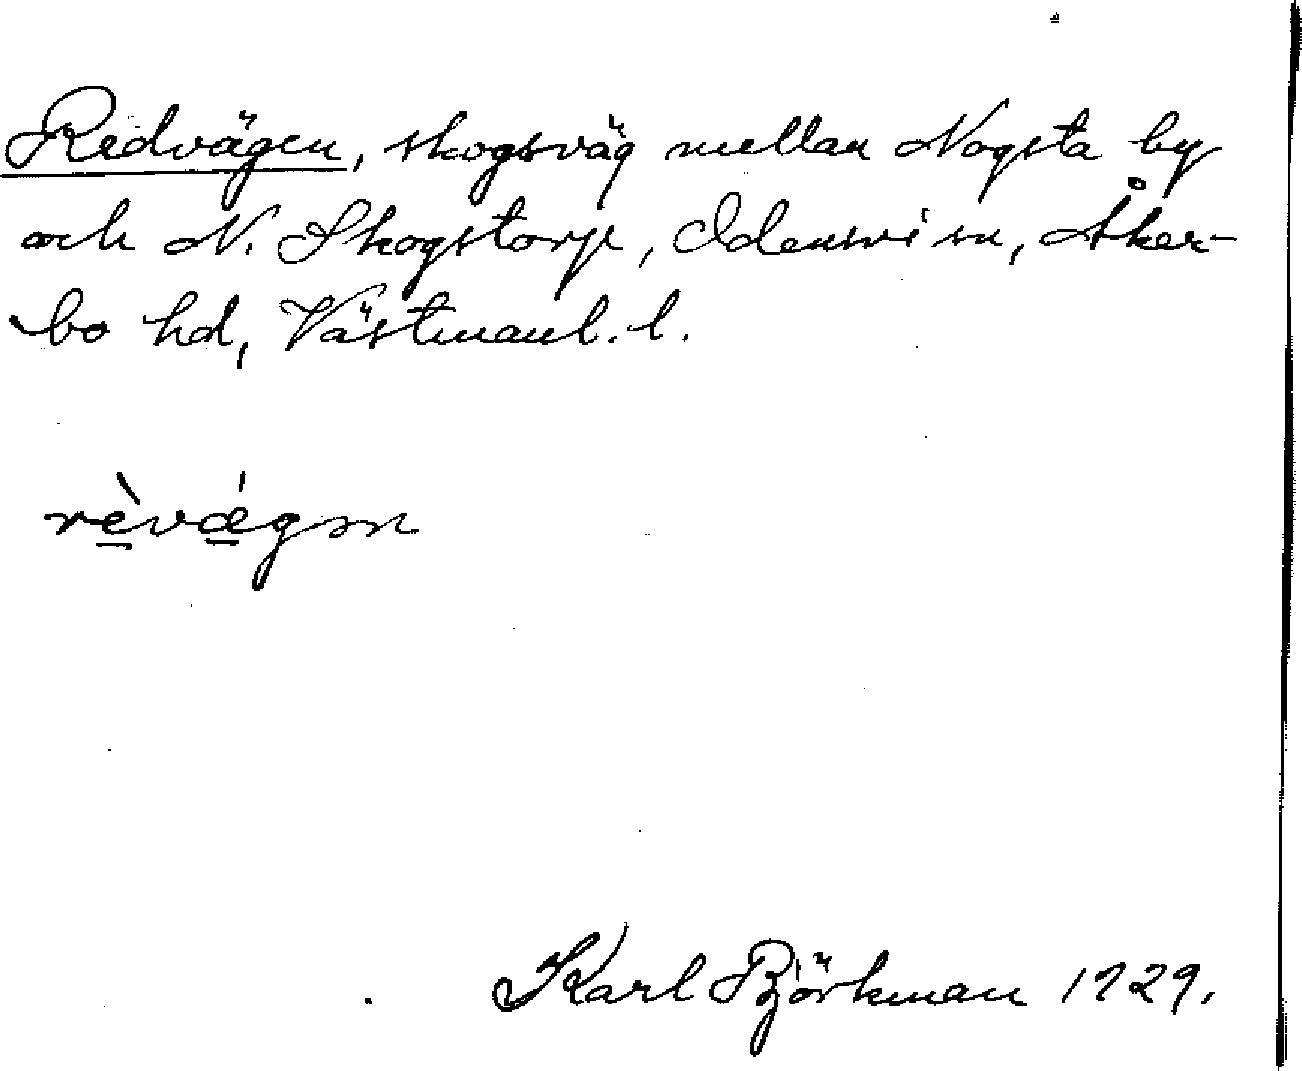 Redvägen, skogsväg mellan Nogsta by
och N. Skogstorp, Odensvi sn, Åker-
bo hd, Västmanl. l.
rèvǽgən
Karl Björkman 1929.